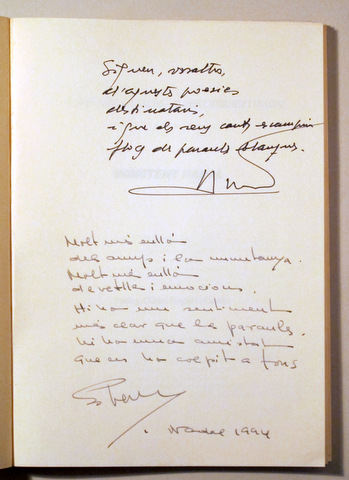 Siguen, vosaltres,
d'aquests poesies
destinataris,
i que els seus cants escampin
flog de paraules
Molt més enllà
dels camps i la muntanya.
Molt més enllà
de vetlles i emocions.
Hi ha un sentiment
més clar que les paraules.
hi ha una amistat
que ens ha colpit a fons
Nadal 1994